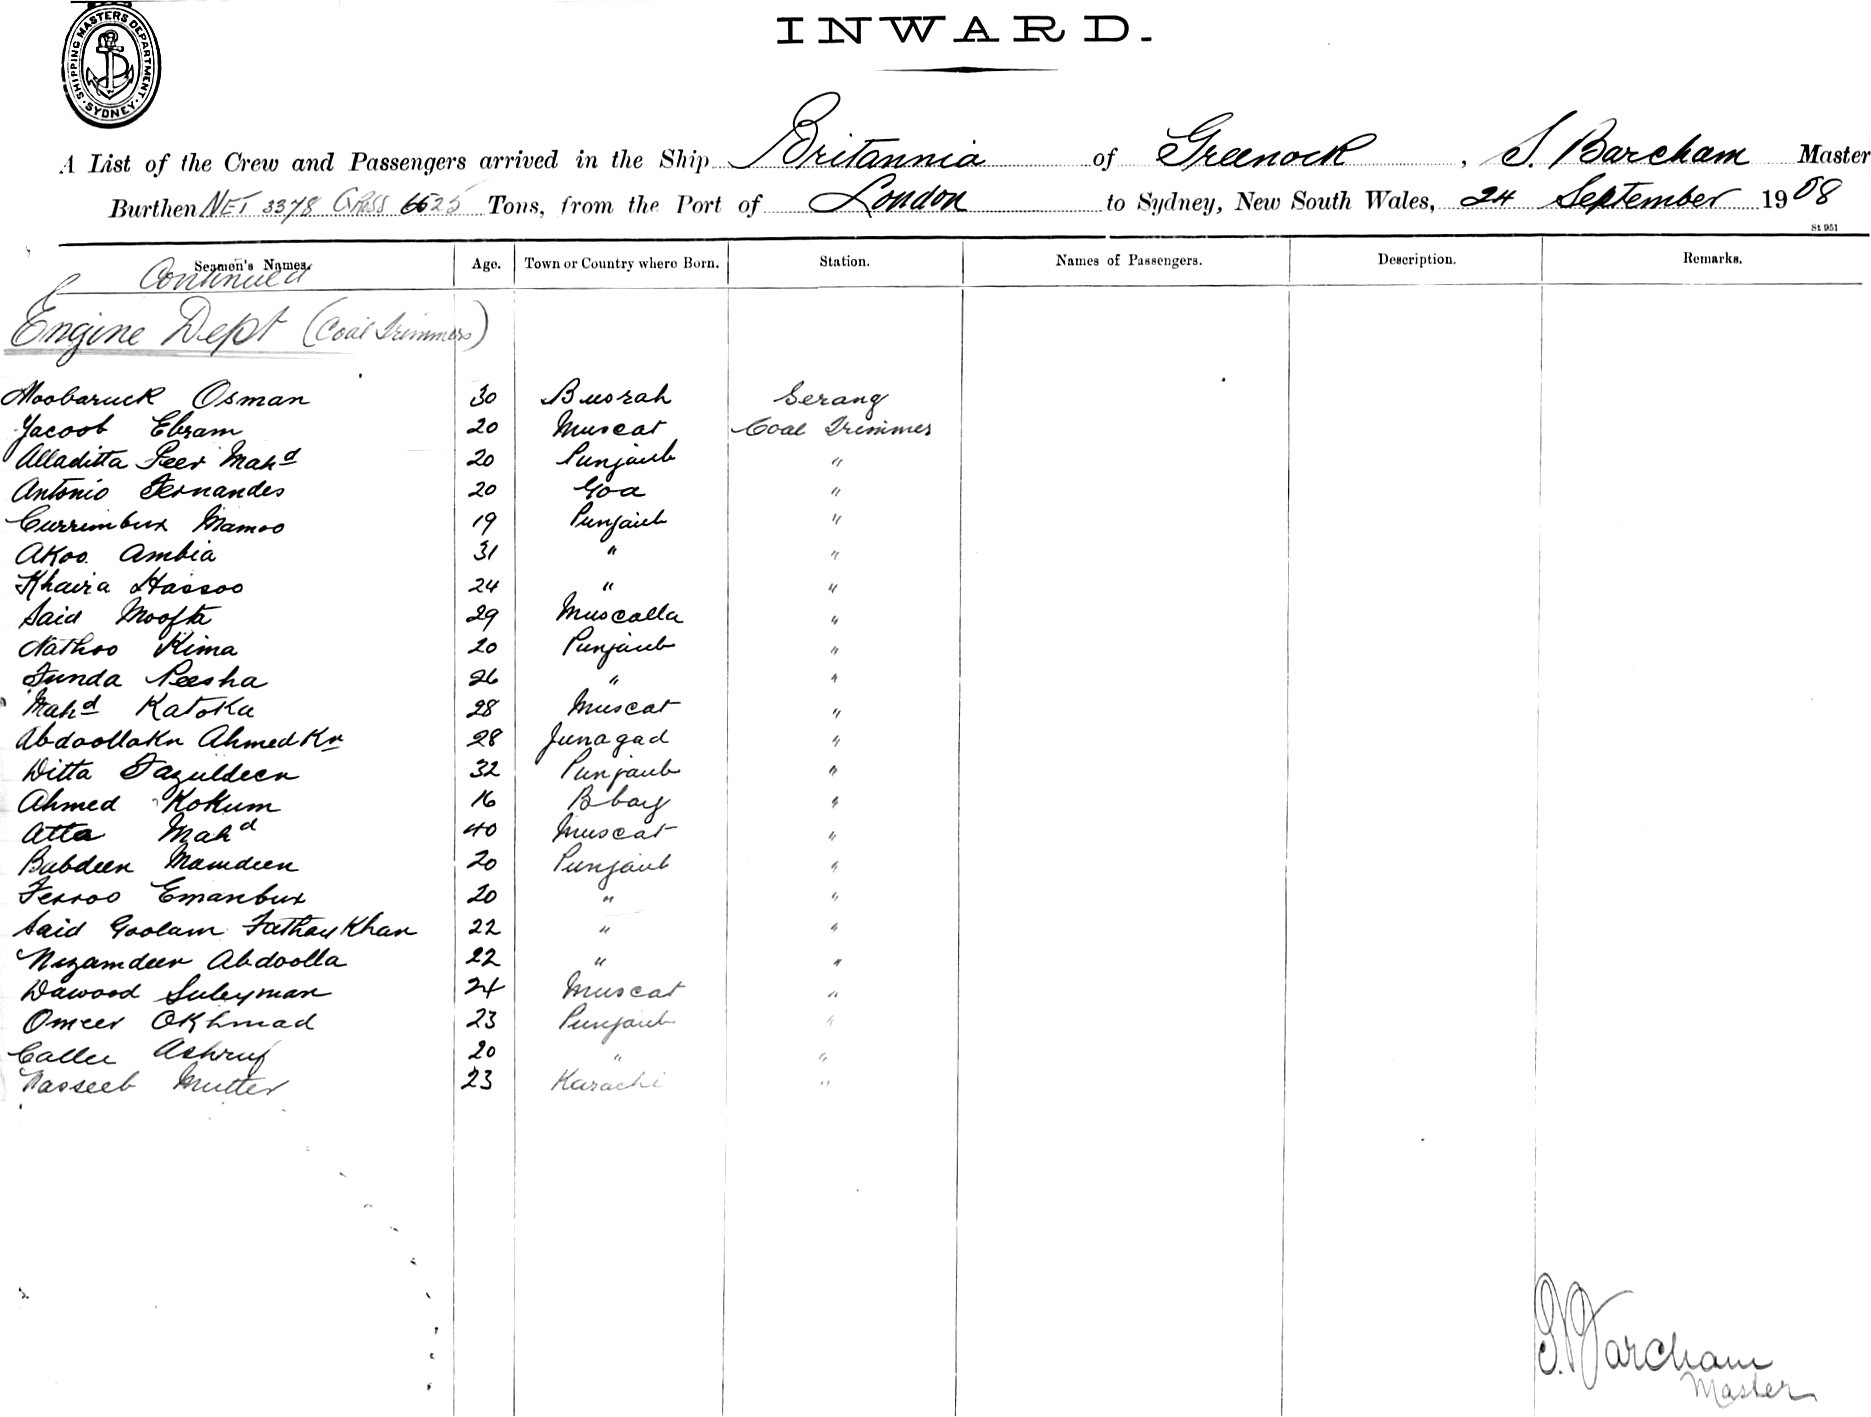 SHIPPING MASTERS DEPARTMENT · SYDNEY ·
INWARD.
A List of the Crew and Passengers arrived in the Ship Britannia of Greenock, S. Barcham Master
Burthen NET 3378 Gross 6525 Tons, from the Port of London to Sydney, New South Wales, 24 September 1908
St 951
Seamen's Names. Age. Town or Country where Born. Station. Names of Passengers. Description. Remarks.
Continued
Engine Dept (Coal Trimmers)
Moobaruck Osman 30 Busrah Serang
Yacoob Ebram 20 Muscat Coal Trimmer
Alladitta Peer Mahd 20 Punjaub "
Antonio Fernandes 20 Goa "
Currimbux Mamoo 19 Punjaub "
Akoo Ambia 31 " "
Khaira Hassoo 24 " "
Said Moofta 29 Muscalla "
Nathoo Kima 20 Punjaub "
Funda Peesha 26 " "
Mahd Katoka 28 Muscat "
Abdoolla Kn Ahmed Kn 28 Junagad "
Ditta Fazuldeen 32 Punjaub "
Ahmed Kokum 16 Bbay "
Atta Mahd 40 Muscat "
Babdeen Mamdeen 20 Punjaub "
Feroo Emanbux 20 " "
Said Goolam Fathay Khan 22 " "
Nizamdeen Abdoolla 22 " "
Dawood Suleyman 24 Muscat "
Omeer Okhmad 23 Punjaub "
Callu Ashruf 20 " "
Nasseeb Mutter 23 Karachi "
S. Barcham
Master